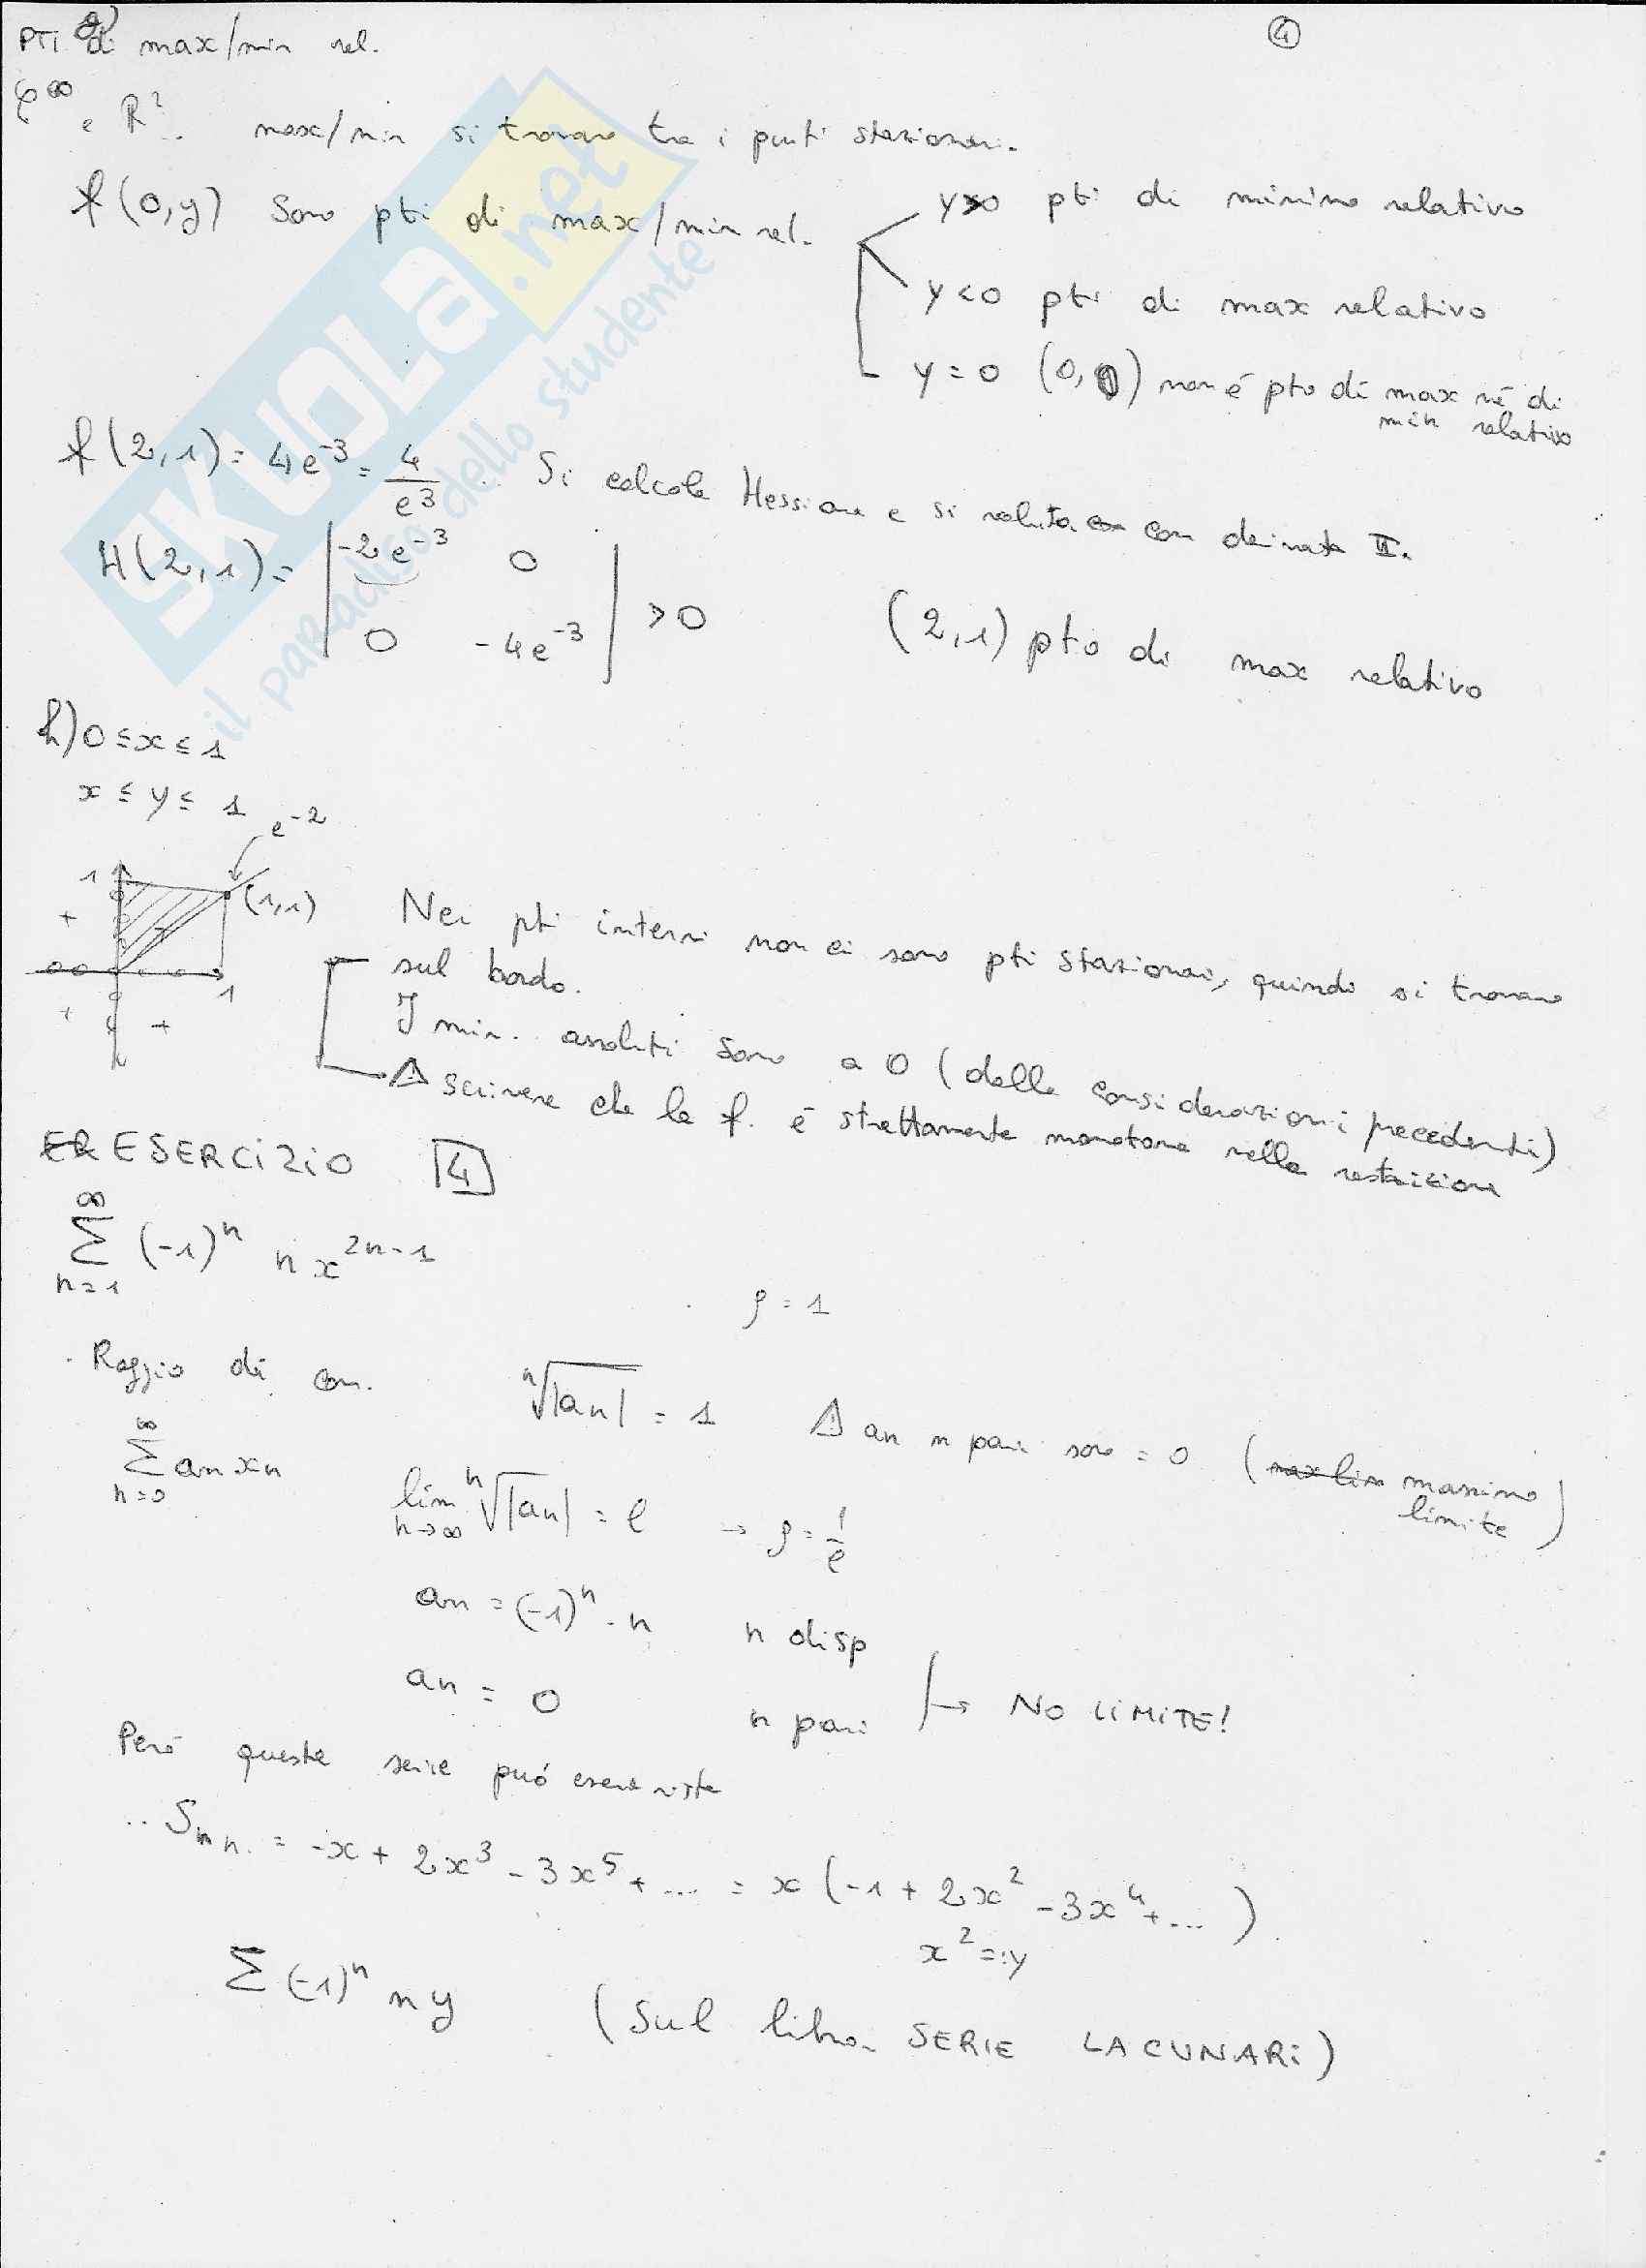 g)
PTI di max/min rel.
4
C^∞ e R². max/min si trovano tra i punti stazionari.
f(0,y) sono pti di max/min rel.
y>0 pti di minimo relativo
y<0 pti di max relativo
y=0 (0,0) non é pto di max né di min relativo
f(2,1) = 4e^-3 = 4/e^3 . Si calcola Hessiano e si valuta con derivata II.
H(2,1) = | -2e^-3 0
0 -4e^-3 | >0
(2,1) pto di max relativo
h) 0 ≤ x ≤ 1
x ≤ y ≤ 1
e^-2
1
(1,1)
1
Nei pti interni non ci sono pti stazionari, quindi si trovano
sul bordo.
I min. assoluti sono a 0 (dalle considerazioni precedenti)
⚠ scrivere che la f. é strettamente monotona nella restrizione
ESERCIZIO 4
∞ Σ n=1 (-1)^n n x^2n-1
ρ = 1
. Raggio di con.
n√|an| = 1 ⚠ an n pari sono = 0 (max lim massimo limite)
∞ Σ n=0 an xn
lim n→∞ n√|an| = l → ρ = 1/l
an = (-1)^n · n n disp
an = 0 n pari
→ NO LIMITE!
Peró questa serie puó essere vista
.. S n. = -x + 2x^3 - 3x^5 + ... = x(-1 + 2x^2 - 3x^4 + ...)
x^2 =: y
Σ (-1)^n n y (Sul libro SERIE LACUNARI)
SKUOLA.net
il paradiso dello studente